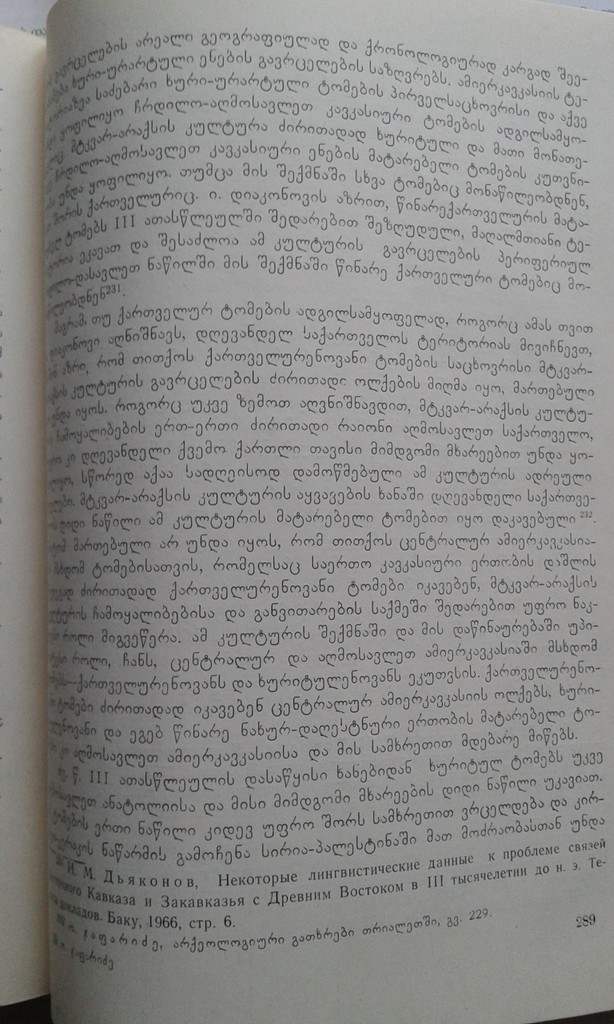 გავრცელების არეალი გეოგრაფიულად და ქრონოლოგიურად კარგად შეე-
ხური-ურარტული ენების გავრცელების საზღვრებს. ამიერკავკასიის ტე-
საძებარი ხური-ურარტული ტომების პირველსაცხოვრისი და აქვე
ყოფილიყო ჩრდილო-აღმოსავლეთ კავკასიური ტომების ადგილსამყო-
მტკვარ-არაქსის კულტურა ძირითადად ხურიტული და მათი მონათე-
ჩრდილო-აღმოსავლეთ კავკასიური ენების მატარებელი ტომების კუთვნი-
უნდა ყოფილიყო. თუმცა მის შექმნაში სხვა ტომებიც მონაწილეობდნენ,
შორის ქართველურიც. ი. დიაკონოვის აზრით, წინარექართველურის მატა-
ტომებს III ათასწლეულში შედარებით შეზღუდული, მაღალმთიანი ტე-
ეკავათ და შესაძლოა ამ კულტურის გავრცელების პერიფერიულ
დასავლეთ ნაწილში მის შექმნაში წინარე ქართველური ტომებიც მო-
231.
მაგრამ, თუ ქართველურ ტომების ადგილსამყოფელად, როგორც ამას თვით
დიაკონოვი აღნიშნავს, დღევანდელ საქართველოს ტერიტორიას მივიჩნევთ,
აზრი, რომ თითქოს ქართველურენოვანი ტომების საცხოვრისი მტკვარ-
კულტურის გავრცელების ძირითადი ოლქების მიღმა იყო, მართებული
იყოს. როგორც უკვე ზემოთ აღვნიშნავდით, მტკვარ-არაქსის კულტუ-
ჩამოყალიბების ერთ-ერთი ძირითადი რაიონი აღმოსავლეთ საქართველო,
კი დღევანდელი ქვემო ქართლი თავისი მიმდგომი მხარეებით უნდა ყო-
სწორედ აქაა სადღეისოდ დამოწმებული ამ კულტურის ადრეული
მტკვარ-არაქსის კულტურის აყვავების ხანაში დღევანდელი საქართვე-
დიდი ნაწილი ამ კულტურის მატარებელი ტომებით იყო დაკავებული 232.
მართებული არ უნდა იყოს, რომ თითქოს ცენტრალურ ამიერკავკასია-
მსხდომ ტომებისათვის, რომელსაც საერთო კავკასიური ერთობის დაშლის
ძირითადად ქართველურენოვანი ტომები იკავებენ, მტკვარ-არაქსის
კულტურის ჩამოყალიბებისა და განვითარების საქმეში შედარებით უფრო ნაკ-
როლი მიგვეწერა. ამ კულტურის შექმნაში და მის დაწინაურებაში უპი-
როლი, ჩანს, ცენტრალურ და აღმოსავლეთ ამიერკავკასიაში მსხდომ
ქართველურენოვანს და ხურიტულენოვანს ეკუთვნის. ქართველურენო-
ტომები ძირითადად იკავებენ ცენტრალურ ამიერკავკასიის ოლქებს, ხური-
და ეგებ წინარე ნახურ-დაღესტნური ერთობის მატარებელი ტო-
კი აღმოსავლეთ ამიერკავკასიისა და მის სამხრეთით მდებარე მიწებს.
ძვ. წ. III ათასწლეულის დასაწყისი ხანებიდან ხურიტულ ტომებს უკვე
ანატოლიისა და მისი მიმდგომი მხარეების დიდი ნაწილი უკავიათ.
ტომების ერთი ნაწილი კიდევ უფრო შორს სამხრეთით ვრცელდება და კირ-
ნაწარმის გამოჩენა სირია-პალესტინაში მათ მოძრაობასთან უნდა
И. М. Дьяконов, Некоторые лингвистические данные к проблеме связей
Кавказа и Закавказья с Древним Востоком в III тысячелетии до н. э. Те-
докладов. Баку, 1966, стр. 6.
ო. ჯაფარიძე, არქეოლოგიური გათხრები თრიალეთში, გვ. 229.
ო. ჯაფარიძე
289